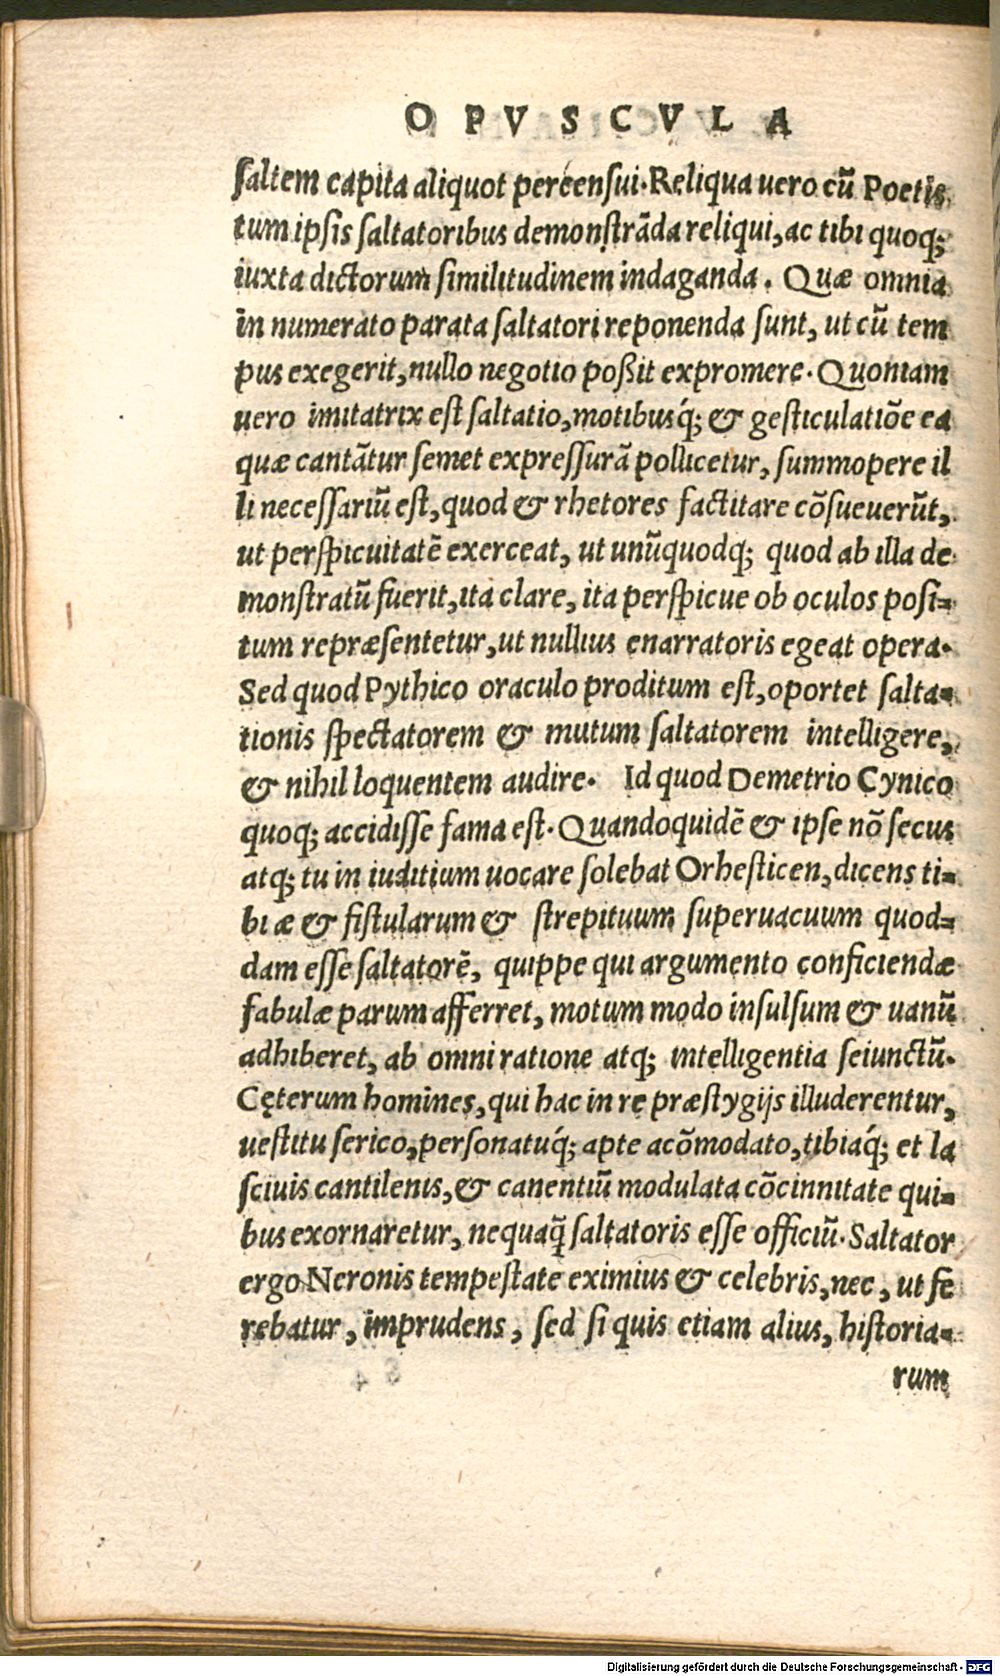 OPVSCVLA
ſaltem capita aliquot percenſui. Reliqua uero cũ Poetis
tum ipſis ſaltatoribus demonſtrãda reliqui, ac tibi quoq;
iuxta dictorum ſimilitudinem indaganda. Quæ omnia
in numerato parata ſaltatori reponenda ſunt, ut cũ tem
pus exegerit, nullo negotio poßit expromere. Quoniam
uero imitatrix eſt ſaltatio, motibusq́; & geſticulatiõe ea
quæ cantãtur ſemet expreſſurã pollicetur, ſummopere il
li neceſſariũ eſt, quod & rhetores factitare cõſueuerũt,
ut perſpicuitatẽ exerceat, ut unũquodq; quod ab illa de
monſtratũ fuerit, ita clare, ita perſpicue ob oculos poſi=
tum repræſentetur, ut nullius enarratoris egeat opera.
Sed quod Pythico oraculo proditum eſt, oportet ſalta=
tionis ſpectatorem & mutum ſaltatorem intelligere,
& nihil loquentem audire. Id quod Demetrio Cynico
quoq; accidiſſe fama eſt. Quandoquidẽ & ipſe nõ ſecus
atq; tu in iuditium uocare ſolebat Orheſticen, dicens ti=
biæ & fiſtularum & ſtrepituum ſuperuacuum quod=
dam eſſe ſaltatorẽ, quippe qui argumento conficiendæ
fabulæ parum afferret, motum modo inſulſum & uanũ
adhiberet, ab omni ratione atq; intelligentia ſeiunctũ.
Cęterum homines, qui hac in re præſtygijs illuderentur,
ueſtitu ſerico, perſonatuq́; apte acõmodato, tibiaq́; et la
ſciuis cantilenis, & canentiũ modulata cõcinnitate qui=
bus exornaretur, nequaq̃ ſaltatoris eſſe officiũ. Saltator
ergo Neronis tempeſtate eximius & celebris, nec, ut fe
rebatur, imprudens, ſed ſi quis etiam alius, hiſtoria=
rum
Digitalisierung gefördert durch die Deutsche Forschungsgemeinschaft - DFG